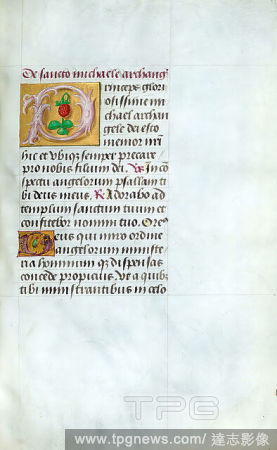 De sancto michaele archang
rinceps glori
osissime mi
chael archan
gele dei esto
memor nrī
hic et vbiqz semper precare
pro nobis filium dei. Vs In cō
spectu angelorum psallam ti
bi deus meus. R Adorabo ad
templum sanctum tuum et
confitebor nomini tuo. Ore͞
Deus qui miro ordine
angelorum ministe
ria hominum qz dispensas
concede propicius vt a quibz
tibi ministrantibus in celo
TPG
www.tpgnews.com/ 達志影像